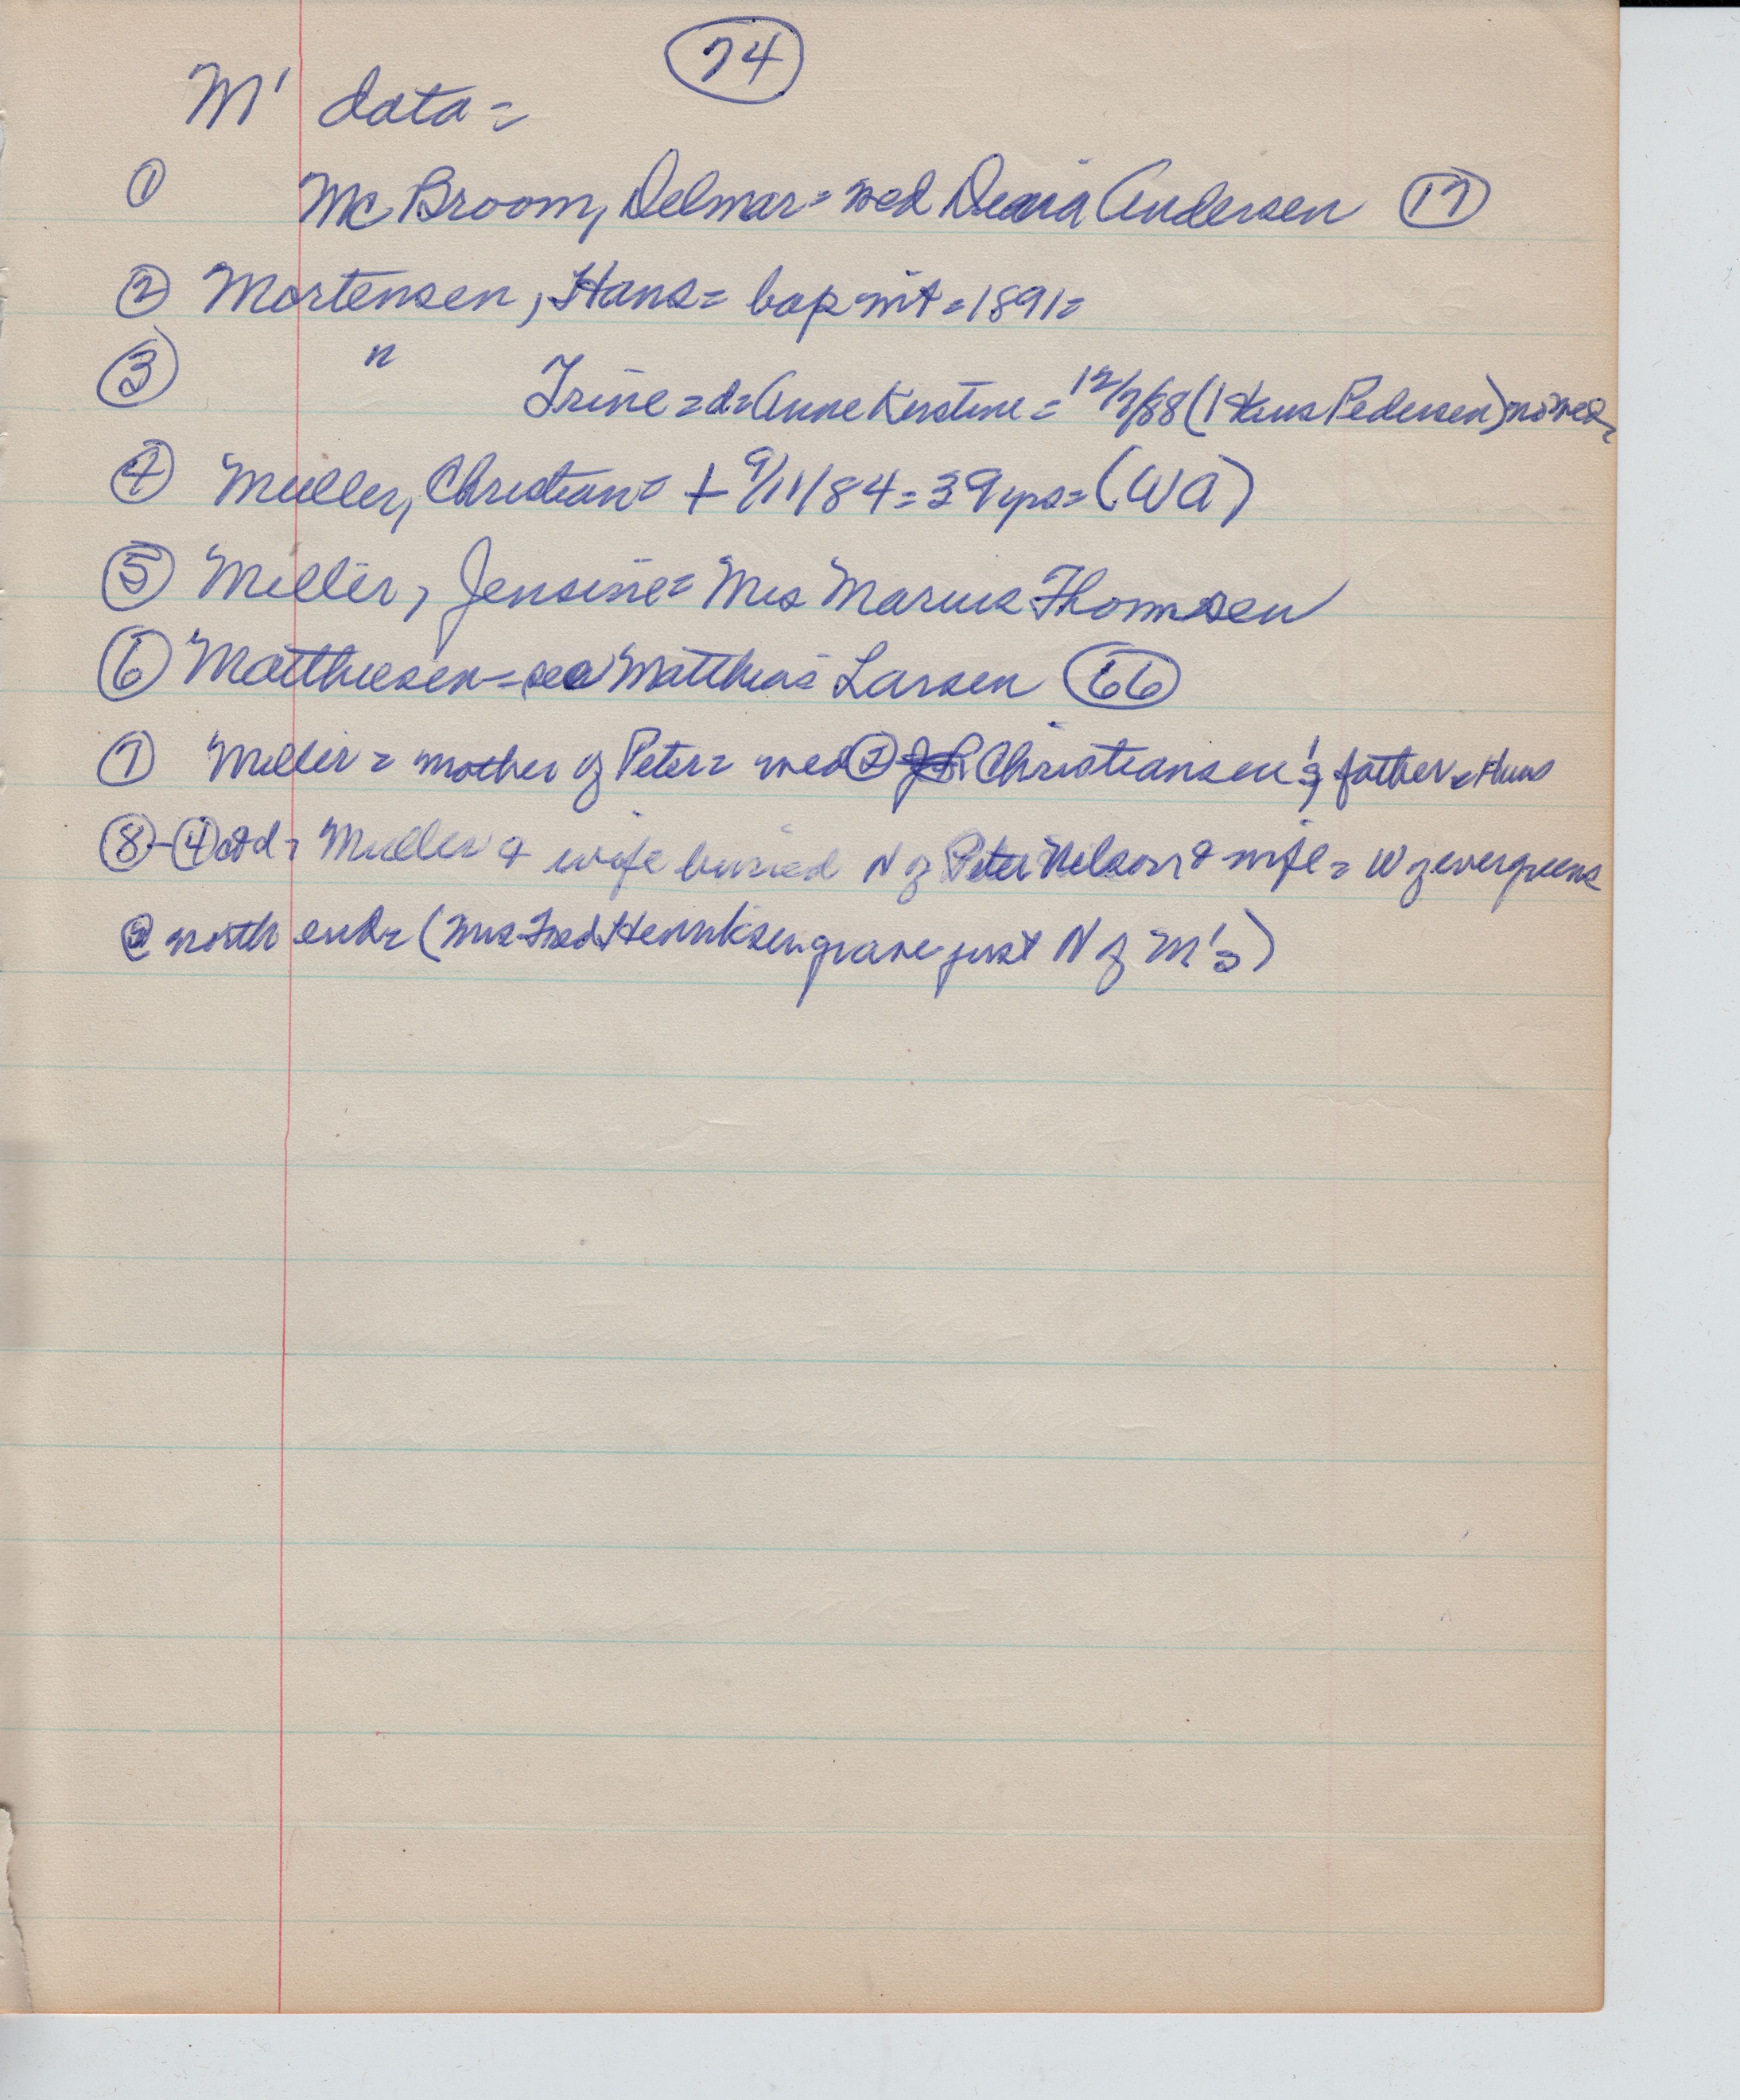 74
M' data =
① McBroom, Delmar = wed Andersen 17
② Mortensen, Hans = bap wit = 1891 =
③ " Trine = d = Anne Kirstine = 12/7/88 (Hans Pedersen) no wed
④ Muller, Christian = + 9/11/84 = 39 yrs = (WA)
⑤ Miller, Jensine = Mrs Marius Thomsen
⑥ Matthiesen = see Matthias Larsen 66
⑦ Miller = mother of Peter = wed ② Christiansen's father = Hans
⑧ - ④ ctd = Muller & wife buried N of Peter Nelson & wife = W of evergreens
@ north end = (Mrs Fred Henriksen grave just N of M's)